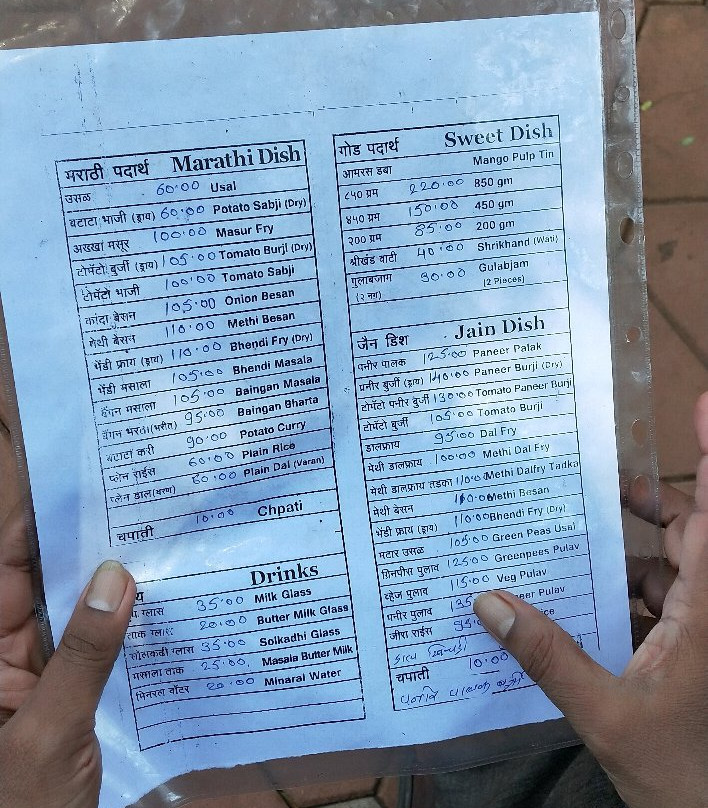 मराठी पदार्थ Marathi Dish
उसळ 60.00 Usal
बटाटा भाजी (ड्राय) 60.00 Potato Sabji (Dry)
अख्खा मसूर 100.00 Masur Fry
टोमॅटो बुर्जी (ड्राय) 105.00 Tomato Burji (Dry)
टोमॅटो भाजी 100.00 Tomato Sabji
कांदा बेसन 105.00 Onion Besan
मेथी बेसन 110.00 Methi Besan
भेंडी फ्राय (ड्राय) 110.00 Bhendi Fry (Dry)
भेंडी मसाला 105.00 Bhendi Masala
वांगन मसाला 105.00 Baingan Masala
वांगन भरता (भरीत) 95.00 Baingan Bharta
बटाटा करी 90.00 Potato Curry
प्लेन राईस 60.00 Plain Rice
प्लेन डाल (वरण) 80.00 Plain Dal (Varan)
चपाती 10.00 Chpati
Drinks
ग्लास 35.00 Milk Glass
ताक ग्लास 20.00 Butter Milk Glass
सोलकढी ग्लास 35.00 Solkadhi Glass
मसाला ताक 25.00 Masala Butter Milk
मिनरल वॉटर 20.00 Minaral Water
गोड पदार्थ Sweet Dish
आमरस डबा Mango Pulp Tin
८५० ग्रम 220.00 850 gm
४५० ग्रम 150.00 450 gm
२०० ग्रम 85.00 200 gm
श्रीखंड वाटी 40.00 Shrikhand (Wati)
गुलाबजाम 30.00 Gulabjam
(२ नग) (2 Pieces)
जैन डिश Jain Dish
पनीर पालक 125.00 Paneer Palak
पनीर बुर्जी (ड्राय) 140.00 Paneer Burji (Dry)
टोमॅटो पनीर बुर्जी 130.00 Tomato Paneer Burji
टोमॅटो बुर्जी 105.00 Tomato Burji
डालफ्राय 95.00 Dal Fry
मेथी डालफ्राय 100.00 Methi Dal Fry
मेथी डालफ्राय तडका 110.00 Methi Dalfry Tadka
मेथी बेसन 110.00 Methi Besan
भेंडी फ्राय (ड्राय) 110.00 Bhendi Fry (Dry)
मटार उसळ 105.00 Green Peas Usal
ग्रिनपीस पुलाव 125.00 Greenpees Pulav
व्हेज पुलाव 115.00 Veg Pulav
पनीर पुलाव 135 Pulav
जीरा राईस 95
चपाती 10.00